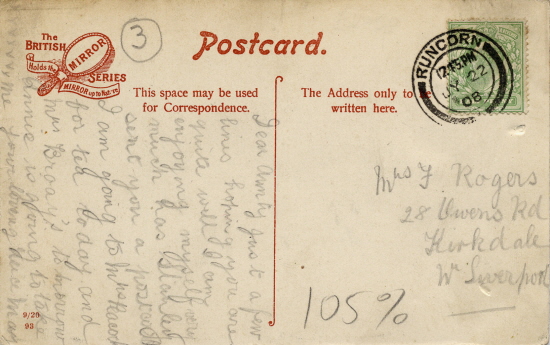 The
BRITISH
Holds the
MIRROR
SERIES
MIRROR up to Nature
3
Postcard.
This space may be used
for Correspondence.
The Address only to be
written here.
RUNCORN
12.45 PM
JY 22
08
Dear Aunty just a few
lines hoping you are
quite well I am
enjoying myself very
much has
sent you a postcard
I am going to Mrs
for tea today and
Mrs to morrow
Annie is going to take
me your loving niece May
Mrs F. Rogers
28 Owens Rd
Kirkdale
Nr Liverpool
105%
9/20
93